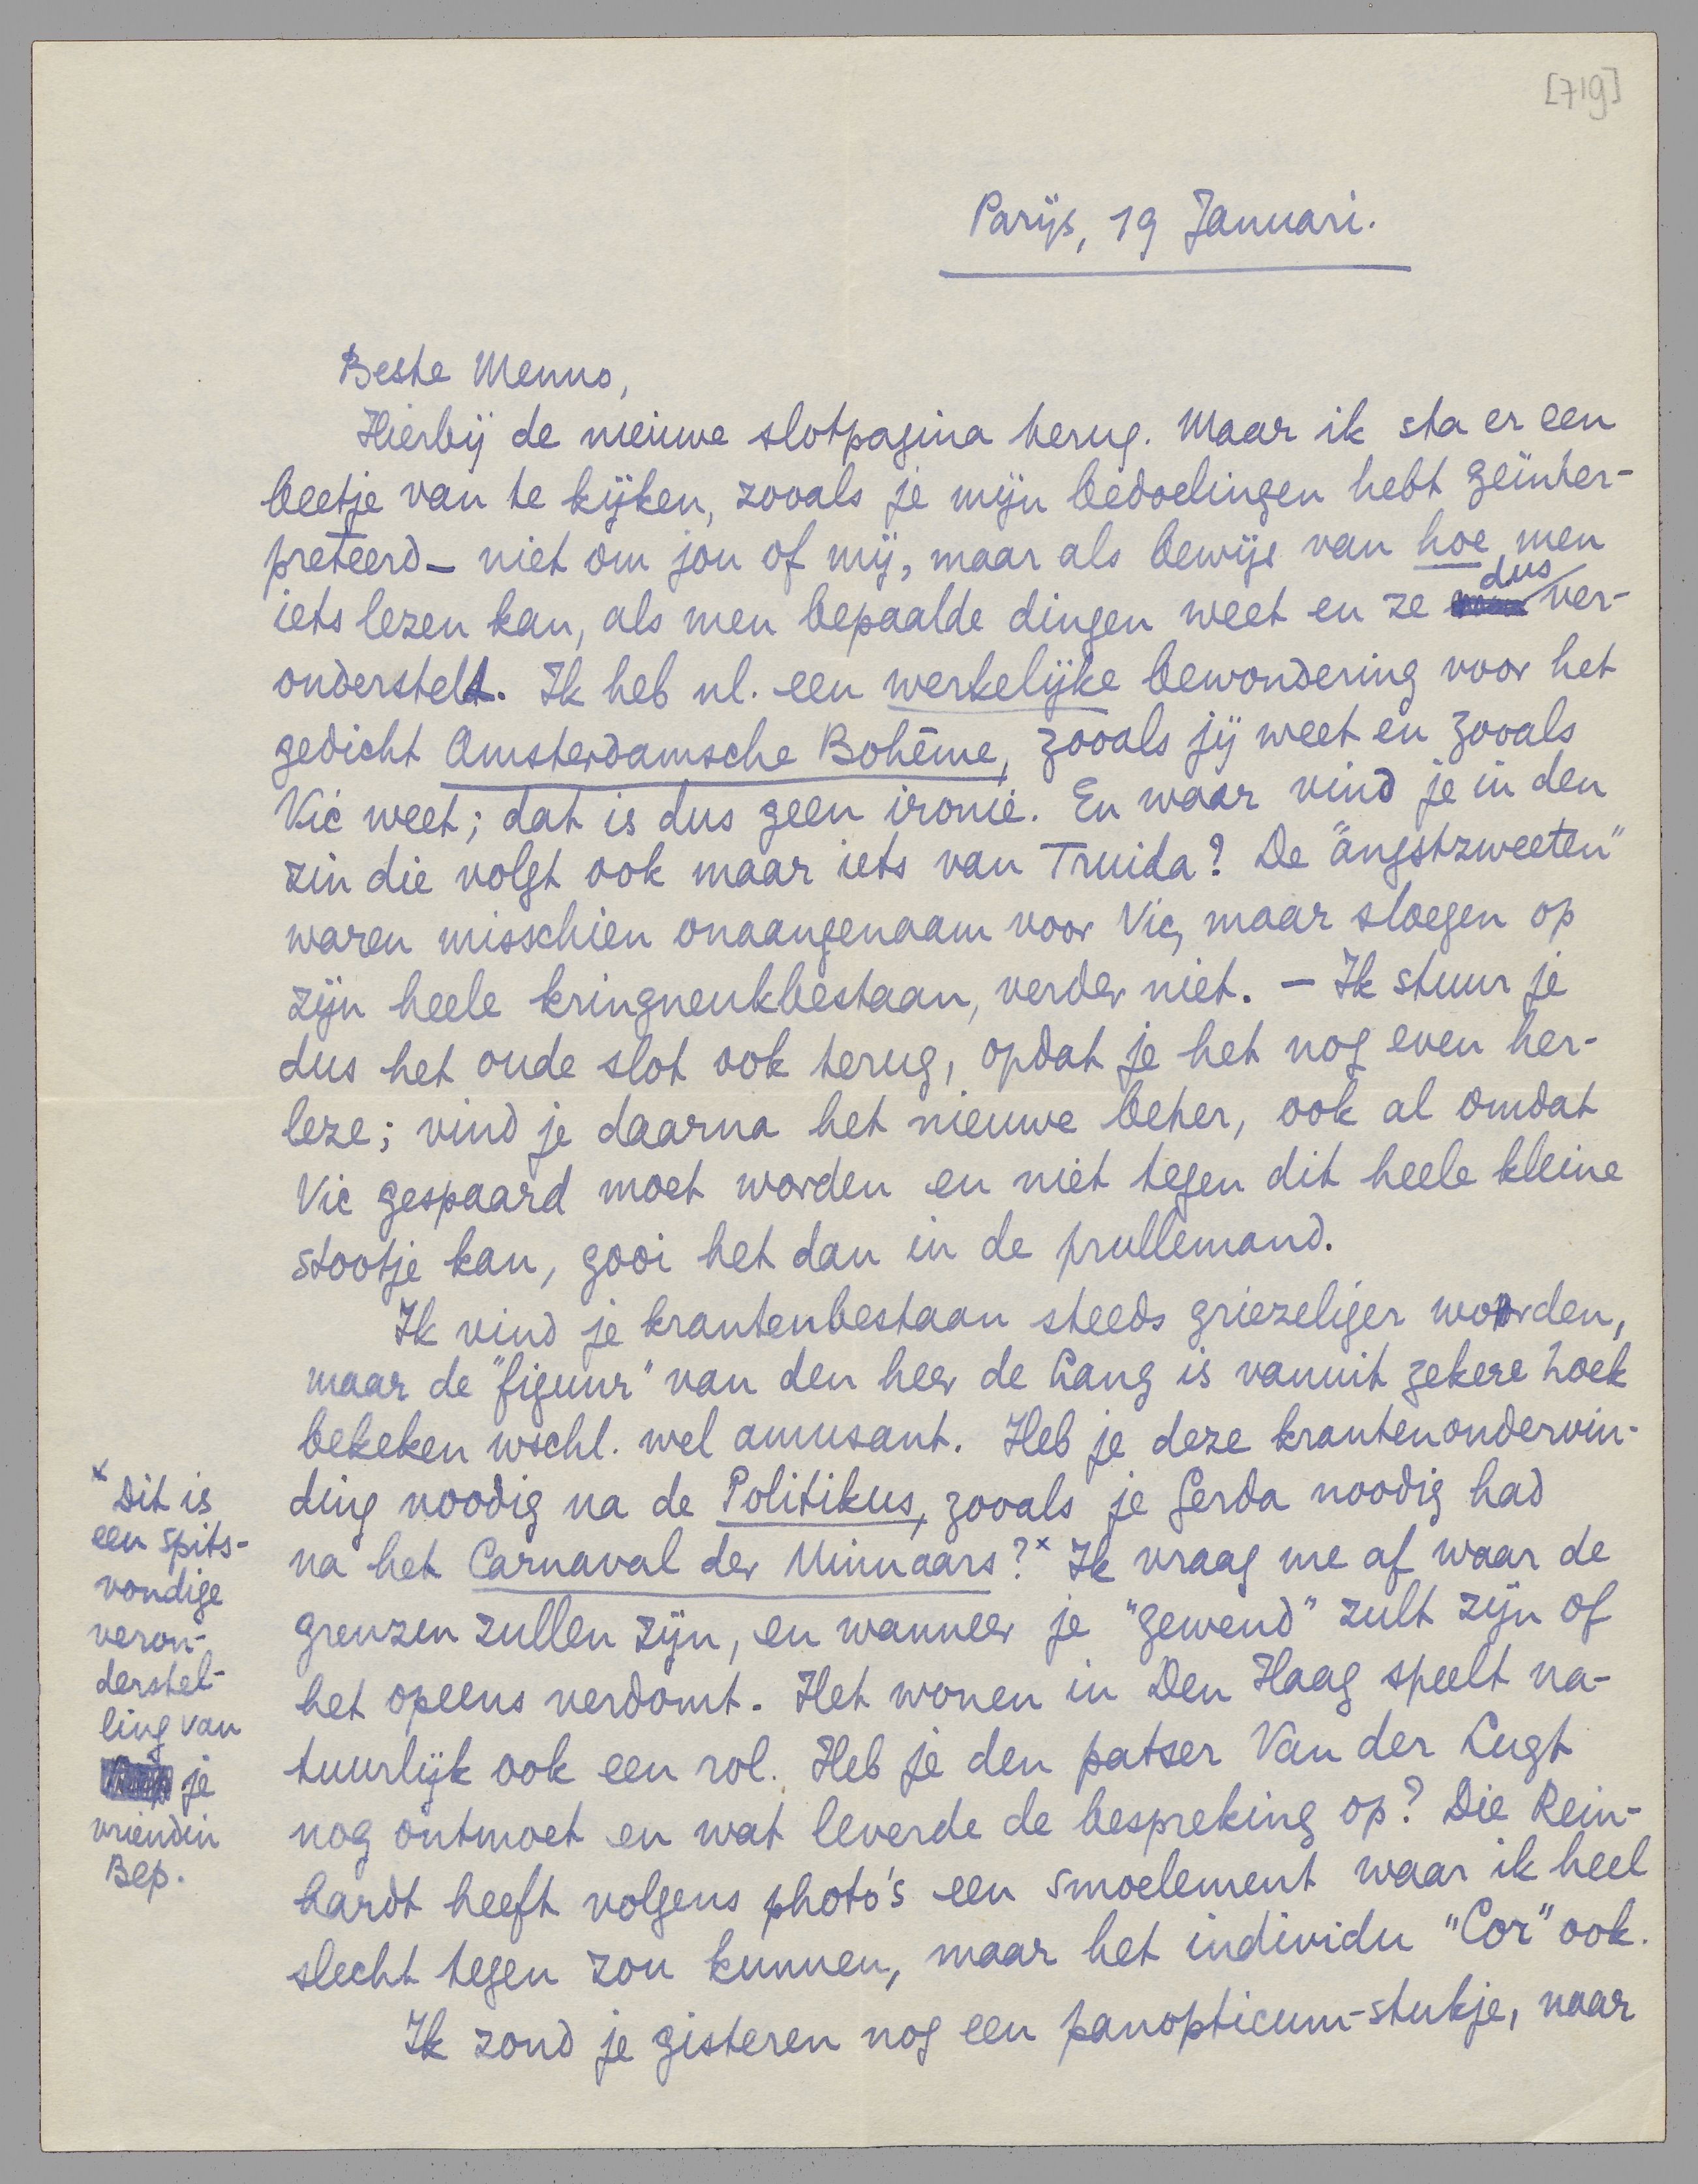 [719]
Parijs, 19 Januari.
Beste Menno,
Hierbij de nieuwe slotpagina terug. Maar ik sta er een
beetje van te kijken, zooals je mijn bedoelingen hebt geïnter-
preteerd – niet om jou of mij, maar als bewijs van hoe men
iets lezen kan, als men bepaalde dingen weet en ze dus ver-
onderstelt. Ik heb nl. een werkelijke bewondering voor het
gedicht Amsterdamsche Bohême, zooals jij weet en zooals
Vic weet; dat is dus geen ironie. En waar vind je in den
zin die volgt ook maar iets van Truida? De "angstzweeten"
waren misschien onaangenaam voor Vic, maar sloegen op
zijn heele kringneukbestaan, verder niet. – Ik stuur je
dus het oude slot ook terug, opdat je het nog even her-
leze; vind je daarna het nieuwe beter, ook al omdat
Vic gespaard moet worden en niet tegen dit heele kleine
stootje kan, gooi het dan in de prullemand.
Ik vind je krantenbestaan steeds griezeliger worden,
maar de "figuur" van den heer de Lang is vanuit zekere hoek
bekeken wschl. wel amusant. Heb je deze krantenondervin-
ding noodig na de Politikus, zooals je Gerda noodig had
na het Carnaval der Minnaars?x Ik vraag me af waar de
grenzen zullen zijn, en wanneer je "gewend" zult zijn of
het opeens verdomt. Het wonen in Den Haag speelt na-
tuurlijk ook een rol. Heb je den patser Van der Lugt
nog ontmoet en wat leverde de bespreking op? Die Rein-
hardt heeft volgens photo's een smoelement waar ik heel
slecht tegen zou kunnen, maar het individu "Cor" ook.
Ik zond je gisteren nog een panopticum-stukje, naar
x Dit is
een spits-
vondige
veron-
derstel-
ling van
je
vriendin
Bep.